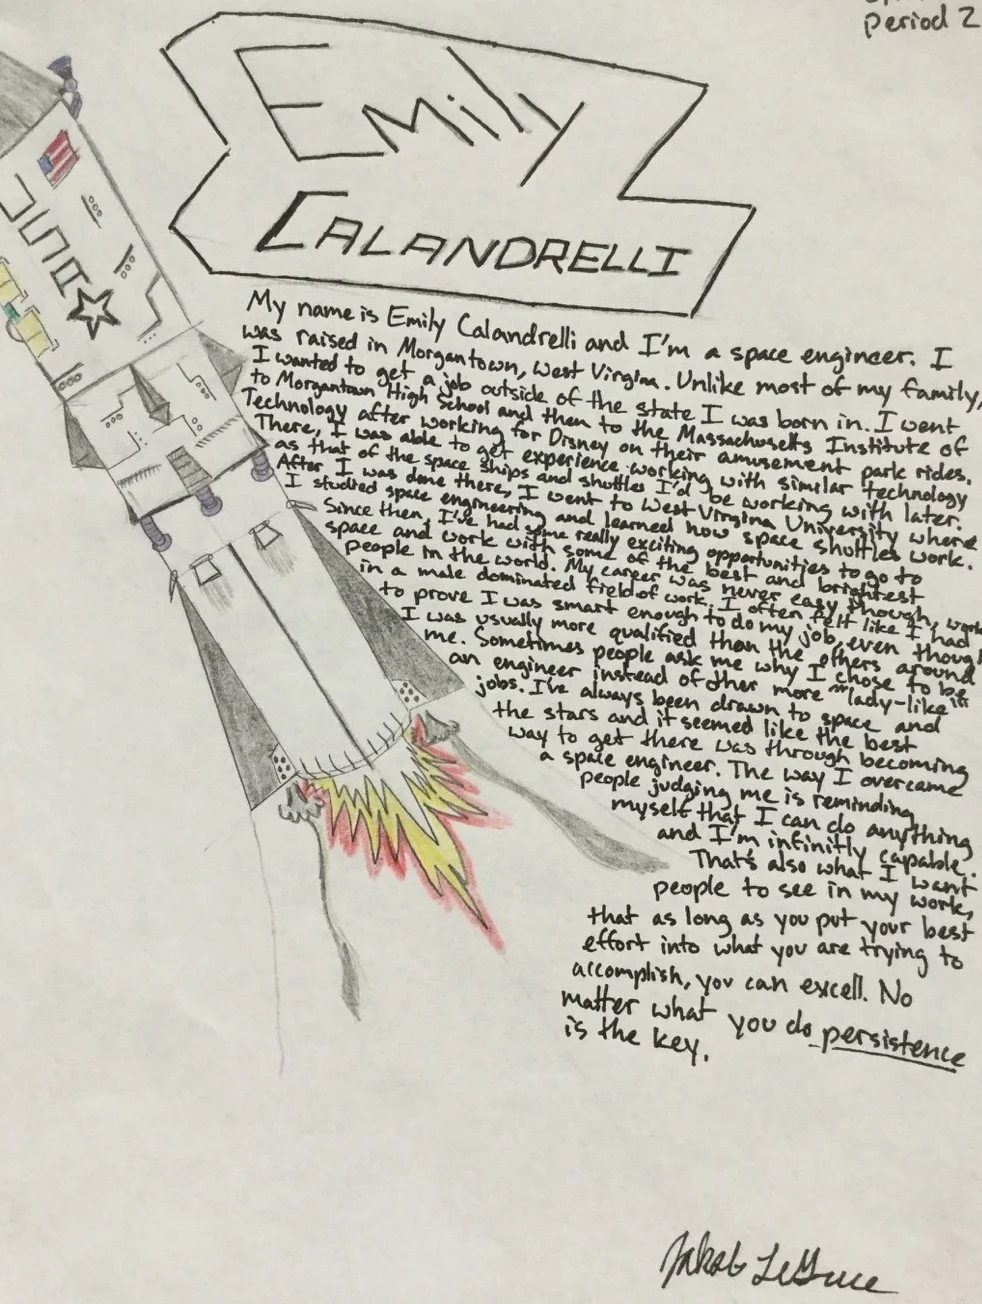 period 2
Emily
CALANDRELLI
My name is Emily Calandrelli and I'm a space engineer. I
was raised in Morgantown, West Virgina. Unlike most of my family,
I wanted to get a job outside of the state I was born in. I went
to Morgantown High School and then to the Massachusetts Institute of
Technology after working for Disney on their amusement park rides.
There, I was able to get experience working with similar technology
as that of the space ships and shuttles I'd be working with later.
After I was done there, I went to West Virgina University where
I studied space engineering and learned how space shuttles work.
Since then, I've had some really exciting opportunities to go to
space and work with some of the best and brightest
people in the world. My career was never easy though, work
in a male dominated field of work. I often felt like I had
to prove I was smart enough to do my job, even though
I was usually more qualified than the others around
me. Sometimes people ask me why I chose to be
an engineer instead of other more "lady-like"
jobs. I've always been drawn to space and
the stars and it seemed like the best
way to get there was through becoming
a space engineer. The way I overcame
people judging me is reminding
myself that I can do anything
and I'm infinitly capable.
That's also what I want
people to see in my work,
that as long as you put your best
effort into what you are trying to
accomplish, you can excell. No
matter what you do persistence
is the key.